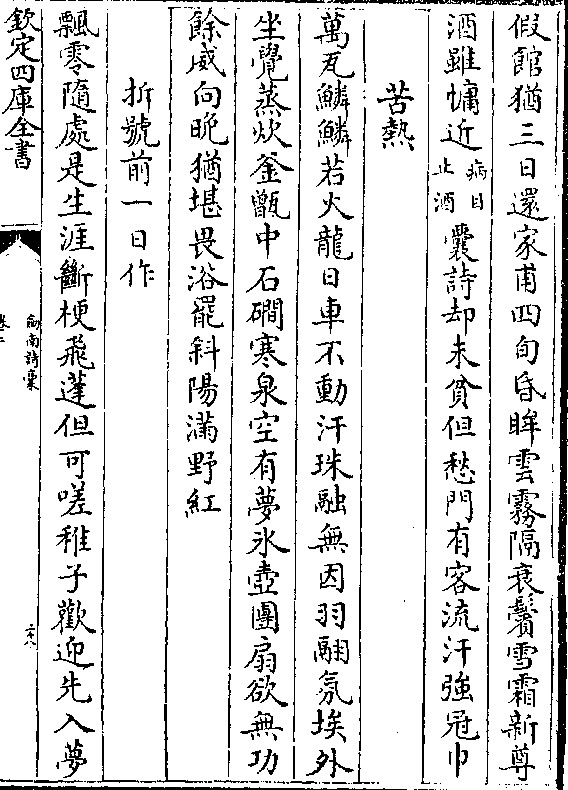 假館猶三日還家甫四旬昏眸雲霧隔衰鬢雪霜新尊
酒雖慵近病目止酒囊詩却未貧但愁門有客流汗強冠巾
苦熱
萬瓦鱗鱗若火龍日車不動汗珠融無因羽翮氛埃外
坐覺蒸炊釜甑中石磵寒泉空有夢氷壺團扇欲無功
餘威向晚猶堪畏浴罷斜陽滿野紅
折號前一日作
飄零隨處是生涯斷梗飛蓬但可嗟稚子歡迎先入夢
欽定四庫全書
劍南詩稾
卷二
二十八